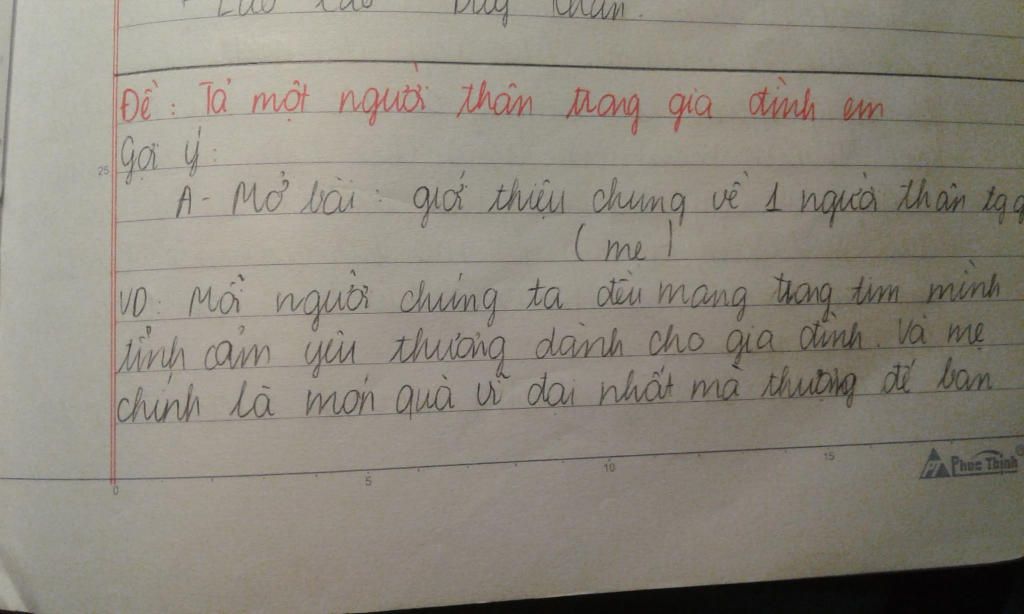 Đề: Tả một người thân trong gia đình em
Gợi ý:
25
A- Mở bài: giới thiệu chung về 1 người thân tgg
(mẹ)
VD: Mỗi người chúng ta đều mang trong tim mình
tình cảm yêu thương dành cho gia đình. Và mẹ
chính là món quà vĩ đại nhất mà thượng đế ban
0 5 10 15
PT Phuc Thinh